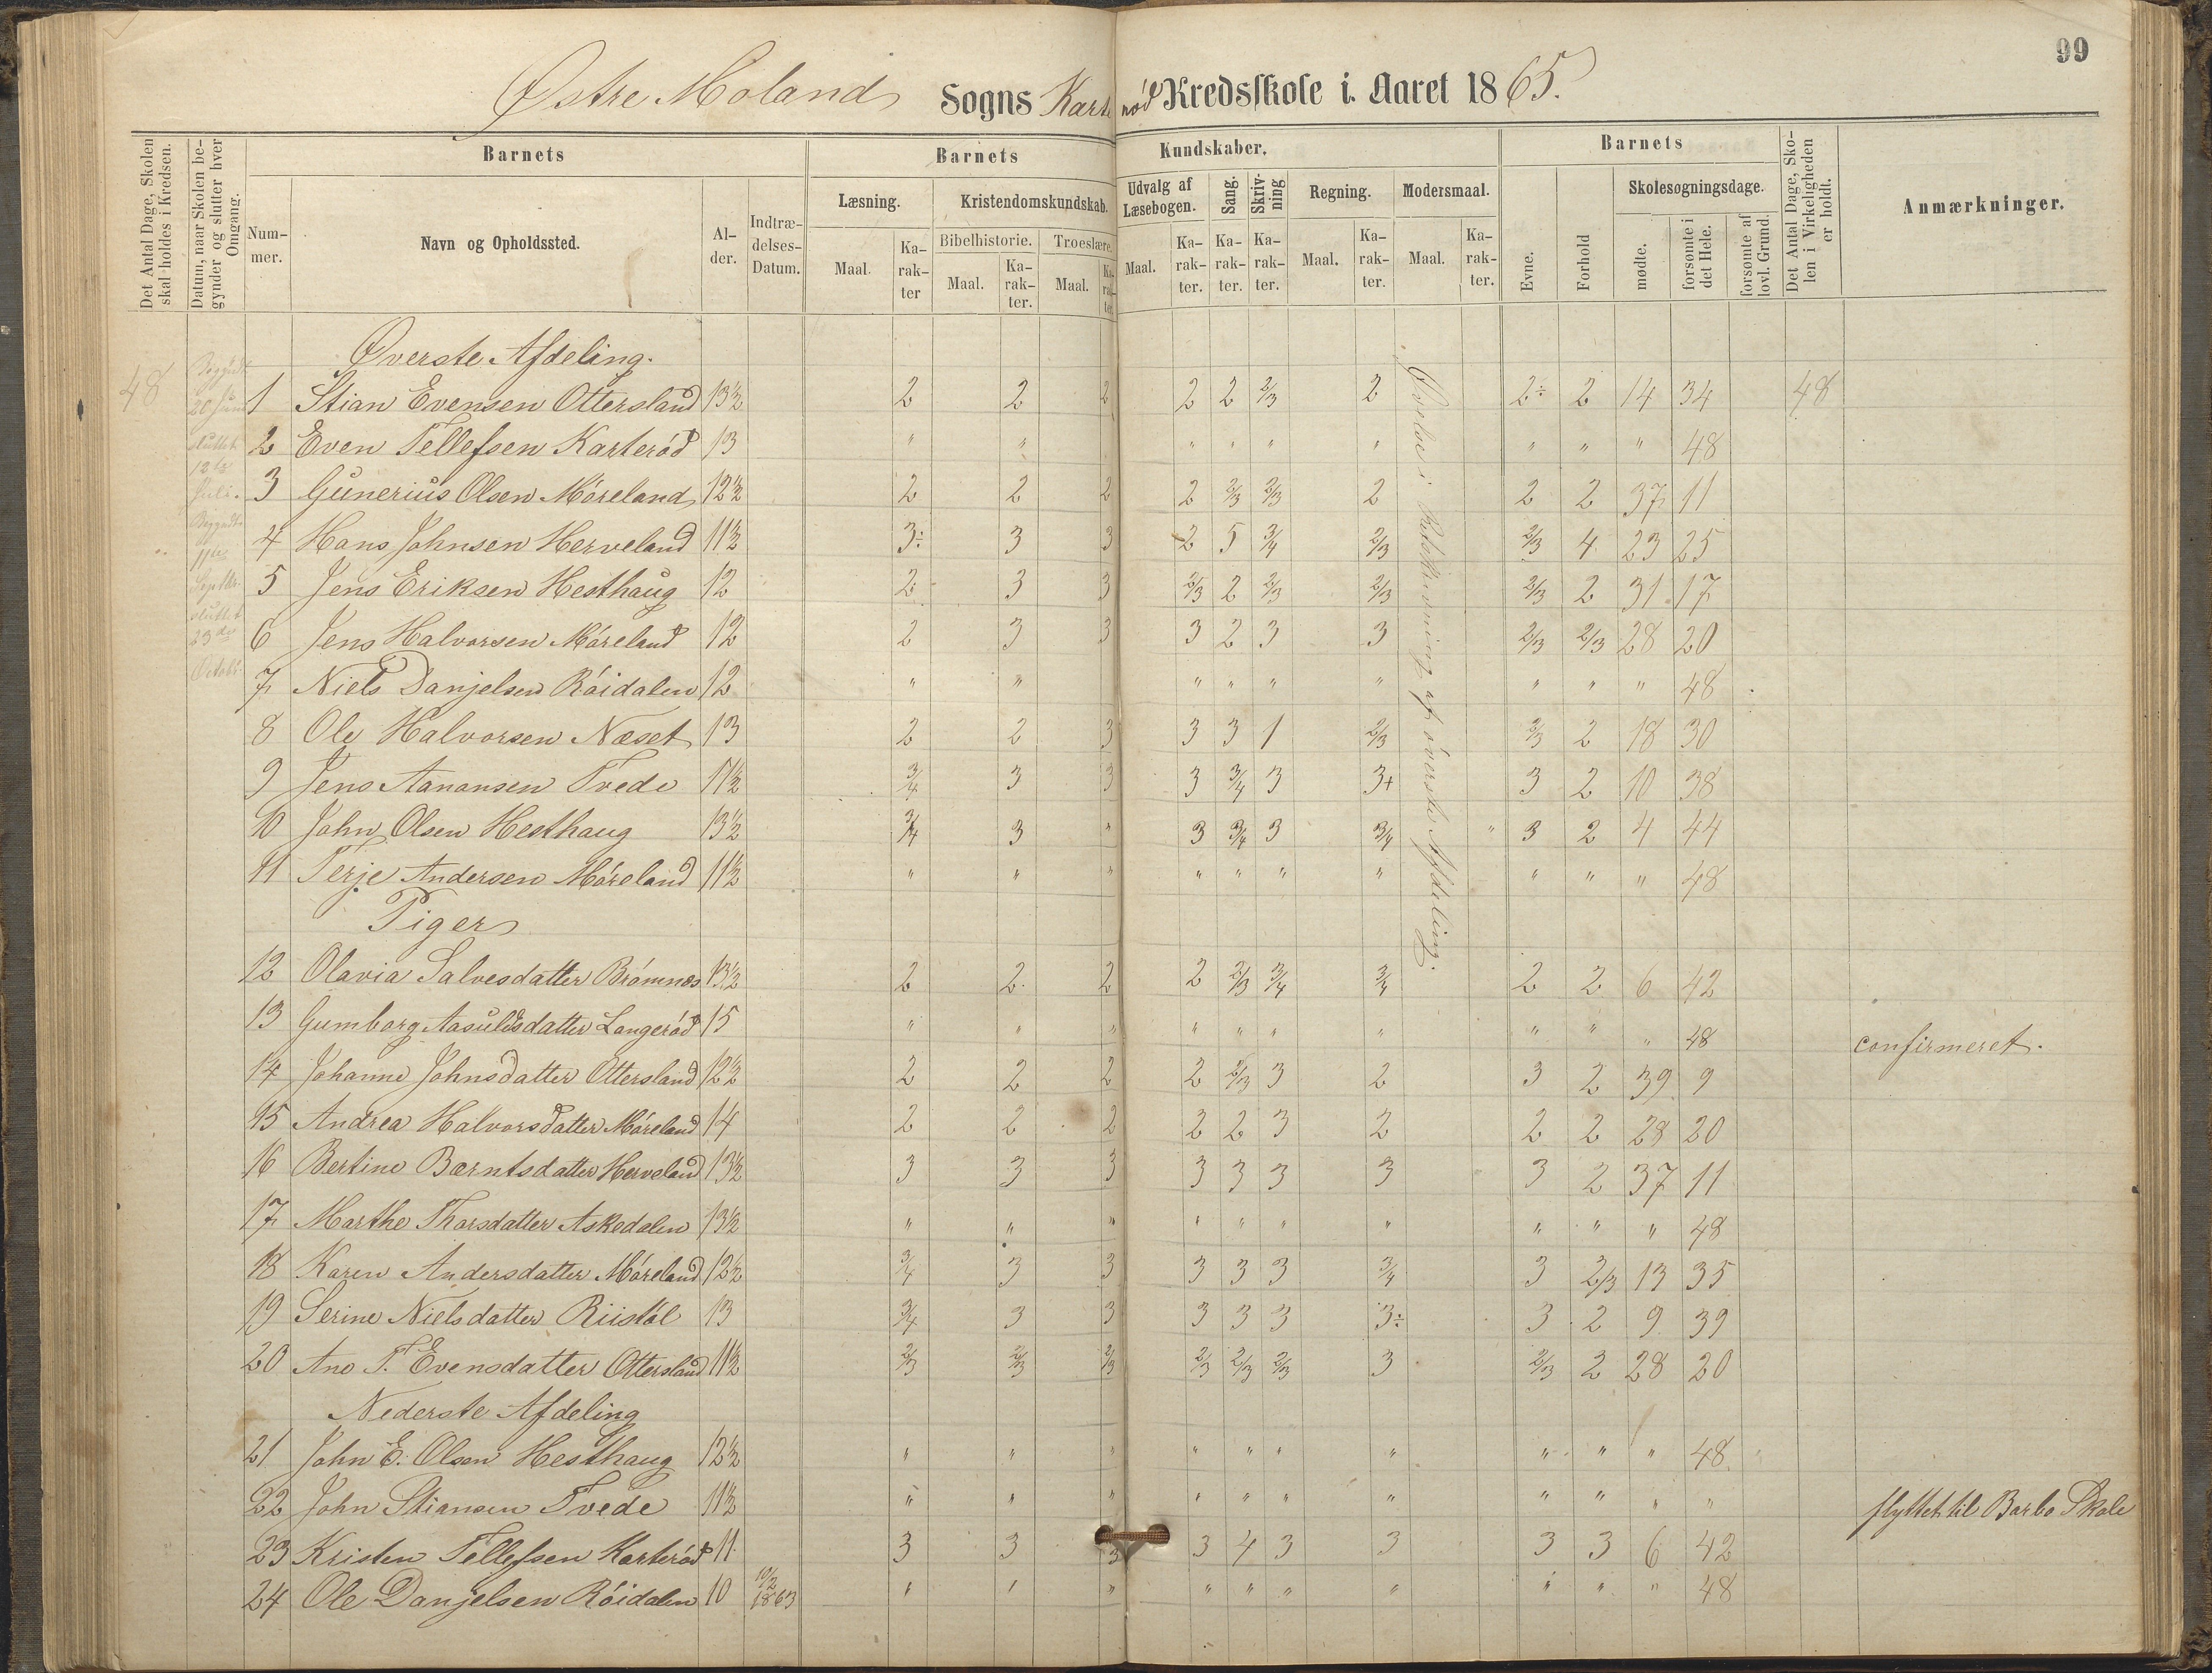 99
Østre Moland Sogns Karterød Kredsskole i Aaret 1865.
Det Antal Dage, Skolen skal holdes i Kredsen.
Datum, naar Skolen begynder og slutter hver Omgang.
Barnets
Barnets Kundskaber.
Barnets
Det Antal Dage, Skolen i Virkeligheden er holdt.
Anmærkninger.
Nummer.
Navn og Opholdssted.
Alder.
Indtrædelses-Datum.
Læsning.
Kristendomskundskab.
Udvalg af Læsebogen.
Sang.
Skrivning
Regning.
Modersmaal.
Evne.
Forhold
Skolesøgningsdage.
Bibelhistorie.
Troeslære.
mødte.
forsømte i det Hele.
forsømte af lovl. Grund.
Maal. Karakter Maal. Karakter. Maal. Karakter. Maal. Karakter. Karakter. Karakter. Maal. Karakter. Maal. Karakter.
Øverste Afdeling.
48 Begyndt 20 Juni sluttet 12te Juli.
Begyndte 11te Septbr. sluttet 23de Octobr.
1 Stian Evensen Ottersland 13½ 2 2 2 2 2 2/3 2 2÷ 2 14 34 48
2 Even Tellefsen Karterød 13 " " " " " " " " " 48
3 Gunerius Olsen Møreland 12½ 2 2 2 2 2/3 2/3 2 2 2 37 11
4 Hans Johnsen Herveland 11½ 3÷ 3 3 2 5 3/4 2/3 2/3 4 23 25
5 Jens Eriksen Hesthaug 12 2 3 3 2/3 2 2/3 2/3 2/3 2 31 17
6 Jens Halvorsen Møreland 12 2 3 3 3 2 3 3 2/3 2/3 28 20
7 Niels Danjelsen Røidalen 12 " " " " " " " " " 48
8 Ole Halvorsen Næset 13 2 2 3 3 3 1 2/3 2/3 2 18 30
9 Jens Aanonsen Tvede 11½ 3/4 3 3 3 3/4 3 3+ 3 2 10 38
10 John Olsen Hesthaug 13½ 3/4 3 " 3 3/4 3 3/4 " 3 2 4 44
11 Terje Andersen Møreland 11½ " " " " " " " " " " 48
af øverste Afdeling.
Piger
12 Olavia Salvesdatter Brømnes 13½ 2 2 2 2 2/3 3/4 3/4 2 2 6 42
13 Gumborg Aasulvsdatter Langerød 15 " " " " " " " " " " 48 confirmeret.
14 Johanne Johnsdatter Ottersland 12½ 2 2 2 2 2/3 3 2 3 2 39 9
15 Andrea Halvorsdatter Møreland 14 2 2 2 2 2 3 2 2 2 28 20
16 Bertine Bærntsdatter Herveland 13½ 3 3 3 3 3 3 3 3 2 37 11
17 Marthe Thorsdatter Askedalen 13½ " " " " " " " " " " 48
18 Karen Andersdatter Møreland 12½ 3/4 3 3 3 3 3 3/4 3 2/3 13 35
19 Serine Nielsdatter Riistøl 13 3/4 3 3 3 3 3 3÷ 3 2 9 39
20 Ane T. Evensdatter Ottersland 11½ 2/3 2/3 2/3 2/3 2/3 2/3 3 2/3 2 28 20
Nederste Afdeling
21 John E. Olsen Hesthaug 12½ " " " " " " " " " " 48
22 John Stiansen Tvede 11½ " " " " " " " " " " " flyttet til Barbo Skole
23 Kristen Tellefsen Karterød 11 3 3 3 3 4 3 3 3 3 6 42
24 Ole Danjelsen Røidalen 10 10/2 1863 " " " " " " " " " " 48